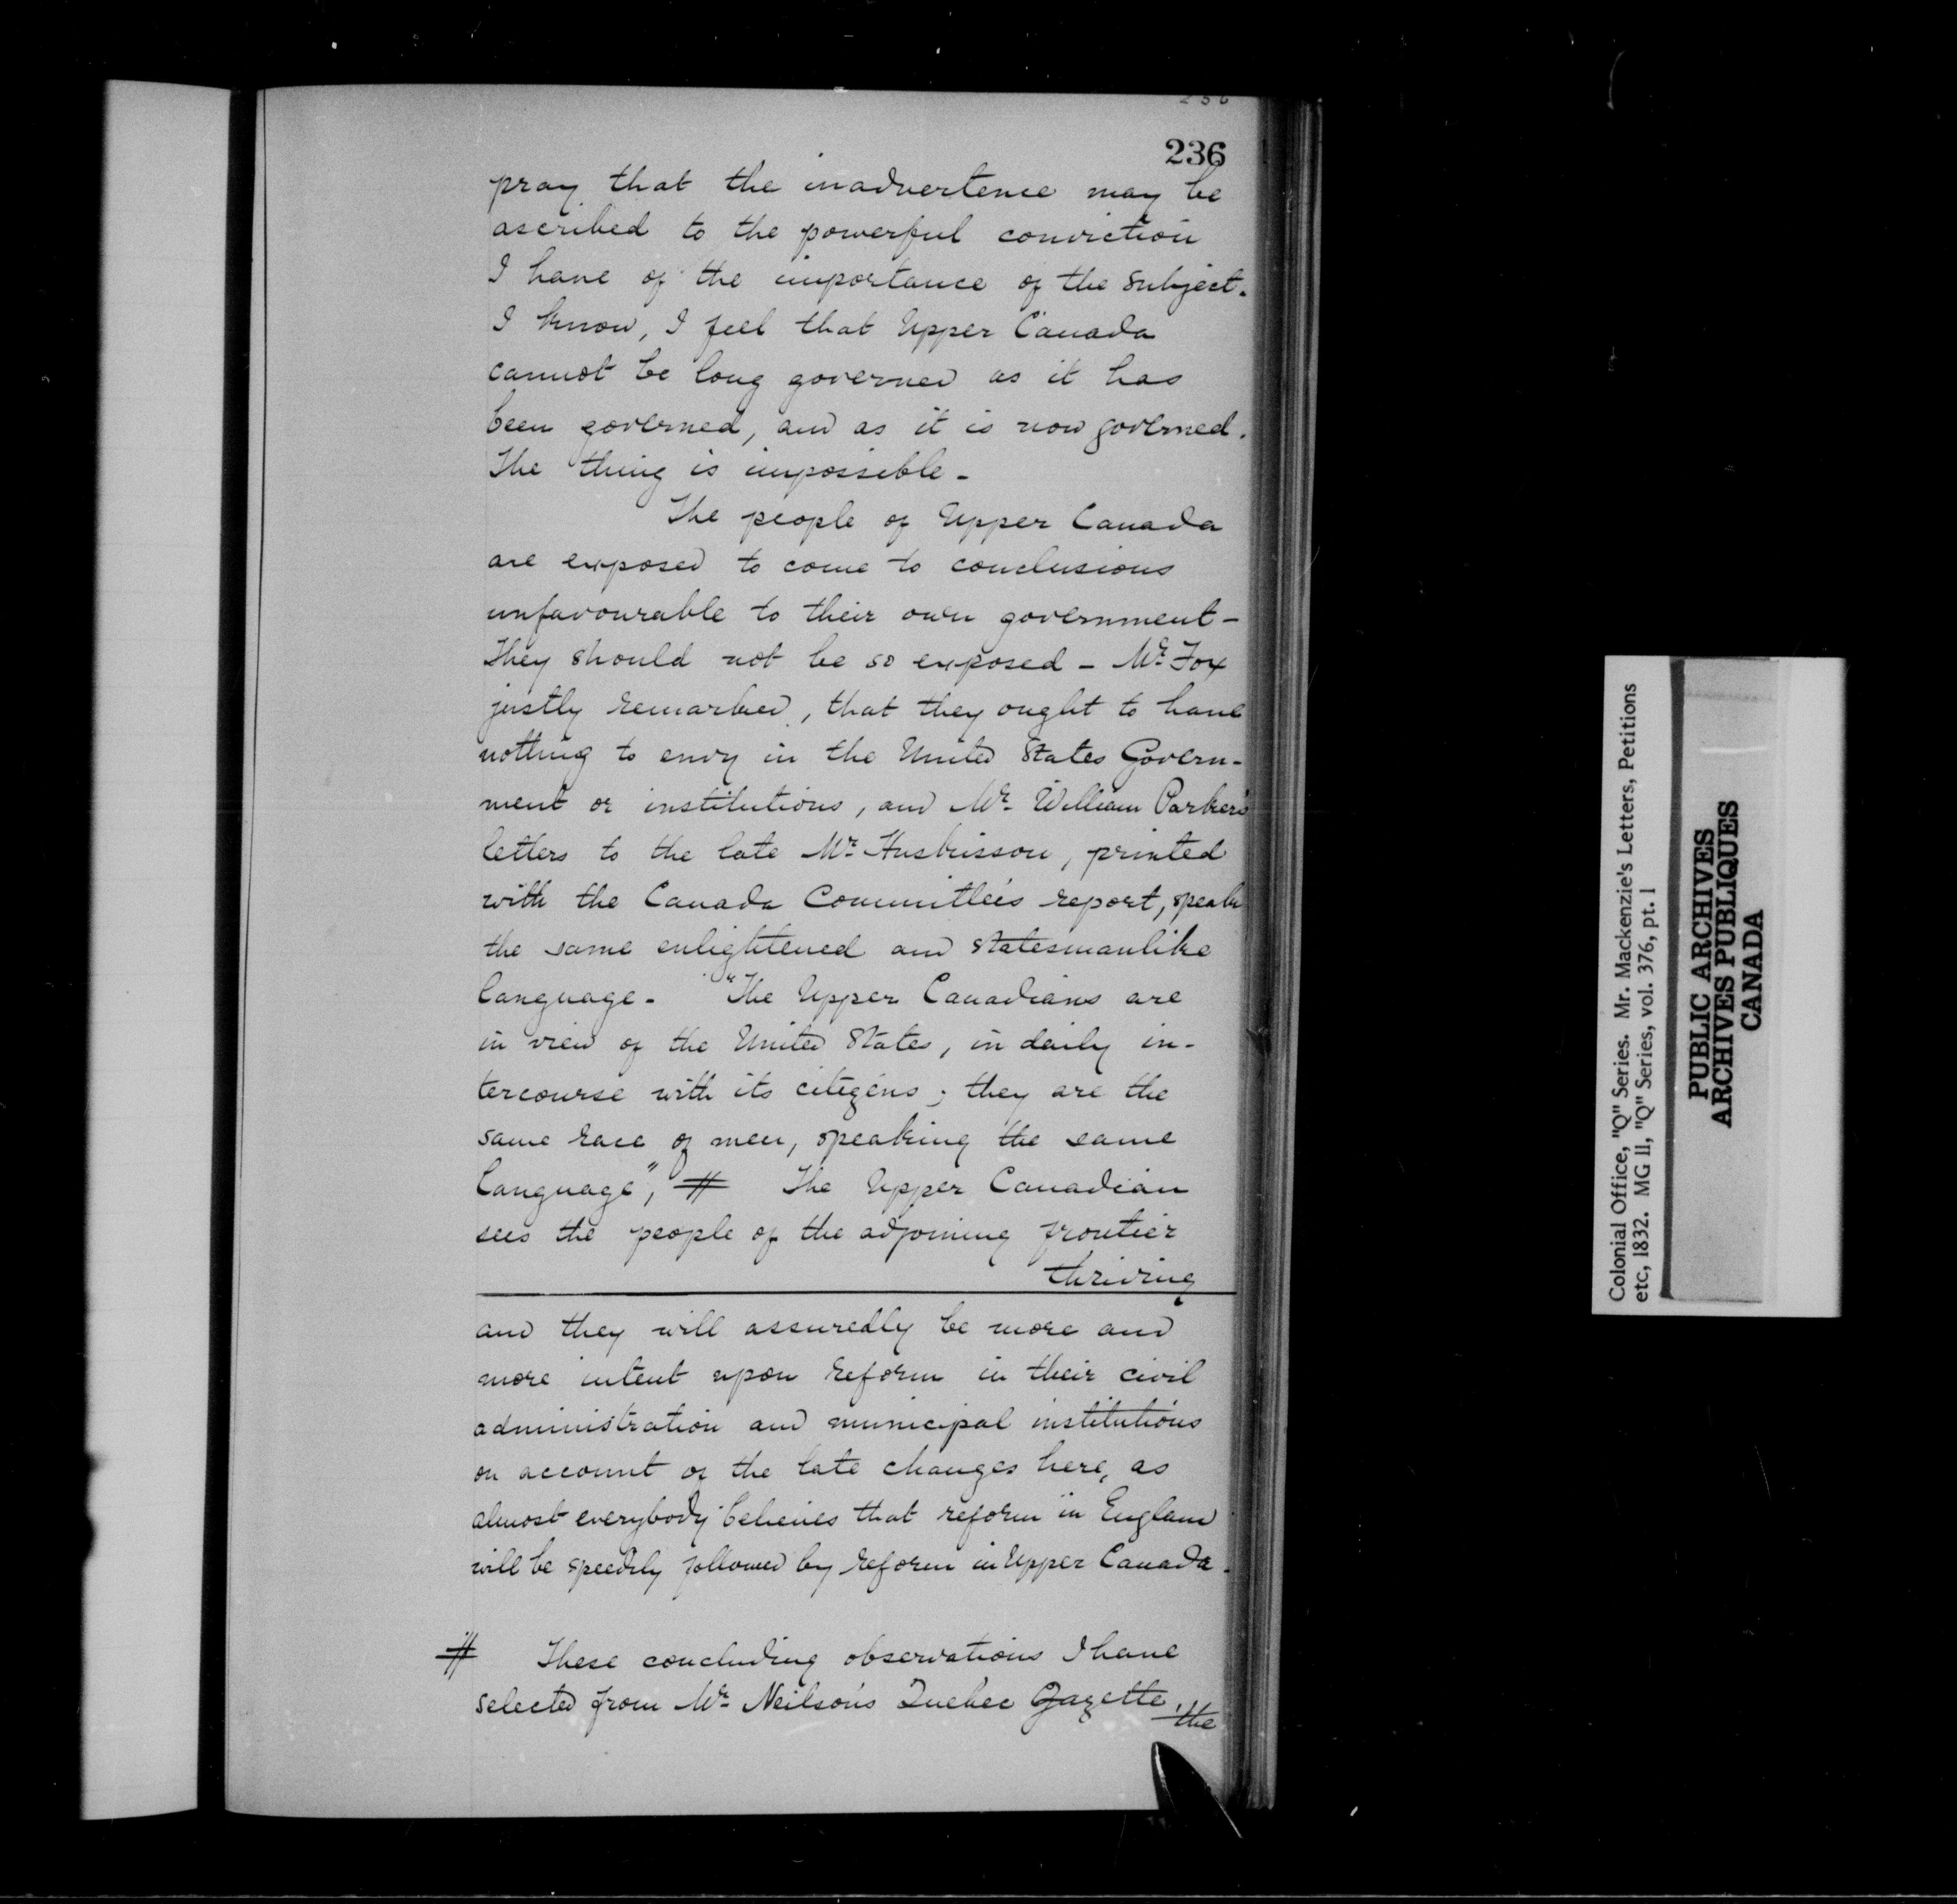 236
pray that the inadvertence may be
ascribed to the powerful conviction
I have of the importance of the subject.
I know, I feel that Upper Canada
cannot be long governed as it has
been governed, and as it is now governed.
The thing is impossible -
The people of Upper Canada
are exposed to come to conclusions
unfavourable to their own government -
They should not be so exposed - Mr. Fox
justly remarked, that they ought to have
nothing to envy in the United States Govern-
ment or institutions, and Mr. William Parker's
letters to the late Mr. Huskisson, printed
with the Canada Committee's report, speak
the same enlightened and statesmanlike
language - "The Upper Canadians are
in view of the United States, in daily in-
tercourse with its citizens; they are the
same race of men, speaking the same
language", # The Upper Canadian
sees the people of the adjoining frontier
thriving
and they will assuredly be more and
more intent upon reform in their civil
administration and municipal institutions
on account of the late changes here, as
almost everybody believes that reform in England
will be speedily followed by reform in Upper Canada.
# These concluding observations I have
selected from Mr. Neilson's Quebec Gazette, the
Colonial Office, "Q" Series. Mr. Mackenzie's Letters, Petitions
etc, 1832. MG 11, "Q" Series, vol. 376, pt. 1
PUBLIC ARCHIVES
ARCHIVES PUBLIQUES
CANADA